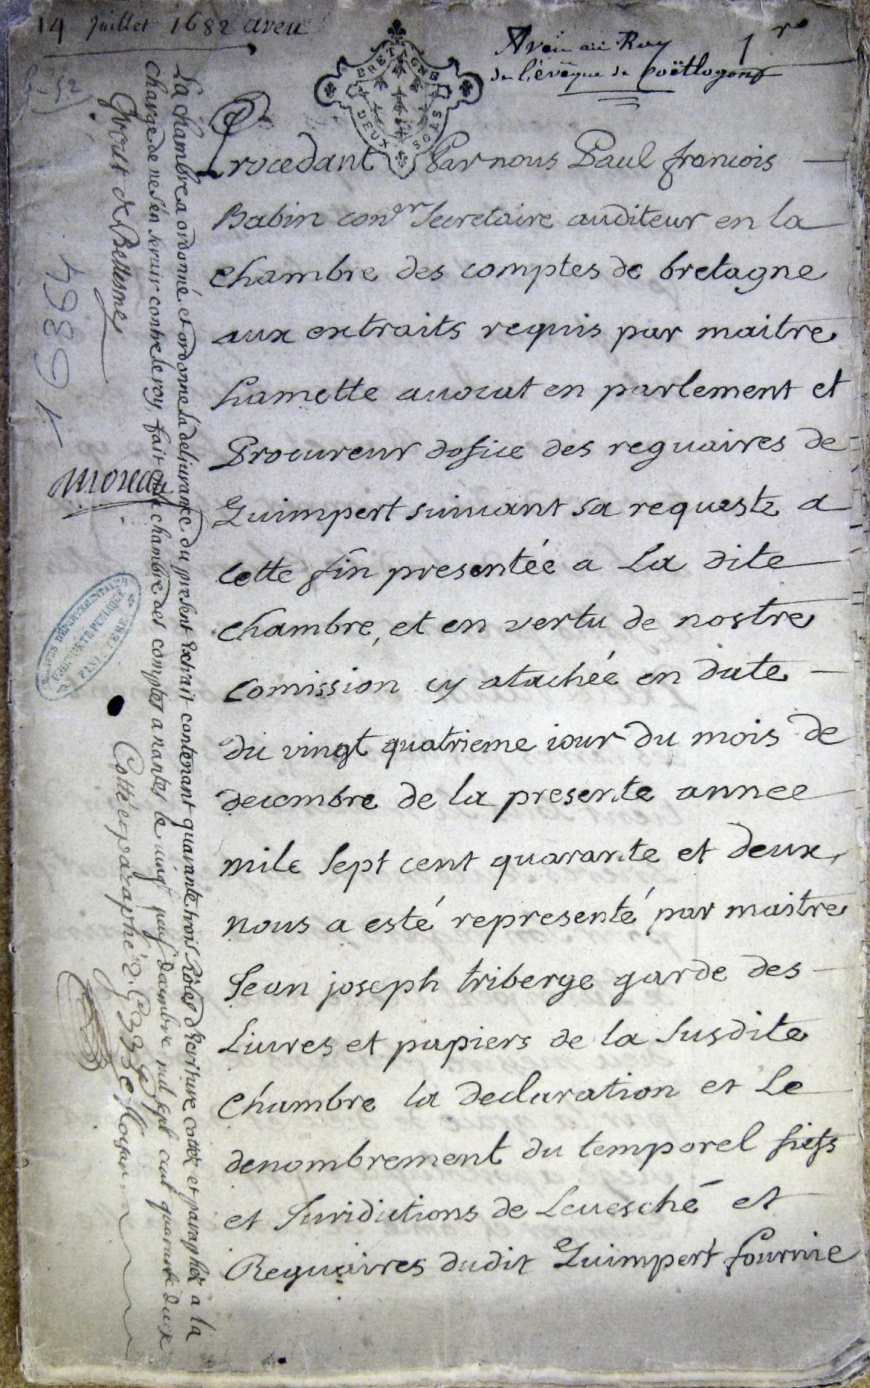 14 Juillet 1682 aveu
Aveu au Roy
de l'évêque de Coëtlogon
1r
BRETAGNE
DEUX SOLS
Procedant Par nous Paul francois
Babin coner Secretaire auditeur en la
chambre des comptes de bretagne
aux extraits requis par maitre
hamette auocat en parlement et
Procureur dofice des reguaires de
Quimpert suiuant sa requeste a
cette fin presentée a La dite
chambre, et en vertu de nostre
Comission cy atachée en date
du vingt quatrieme iour du mois de
decembre de la presente annee
mile Sept cent quarante et deux,
nous a esté representé par maitre
Jean joseph triberge garde des
Liures et papiers de la Susdite
Chambre la declaration et Le
denombrement du temporel fiefs
et Juridictions de Leuesché et
Reguaires dudit Quimpert fournie
La chambre a ordonné et ordonne la deliurance du present Extrait contenant quarante trois Rôles d'Ecriture cottés et paraphés a la
charge de ne s'en seruir contre le roy, fait en la chambre des comptes a nantes le vingt neuf decembre mil sept cent quarante deux
de Bellesme
Moreau
1 G 89 4
Cotté et paraphé